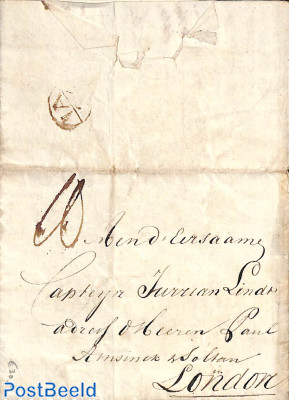 10
Aen d'Eersaame
Capteyn Jurriaan Lindt
adres d'Heeren Paul
Amsinck & Soltau
London
PostBeeld